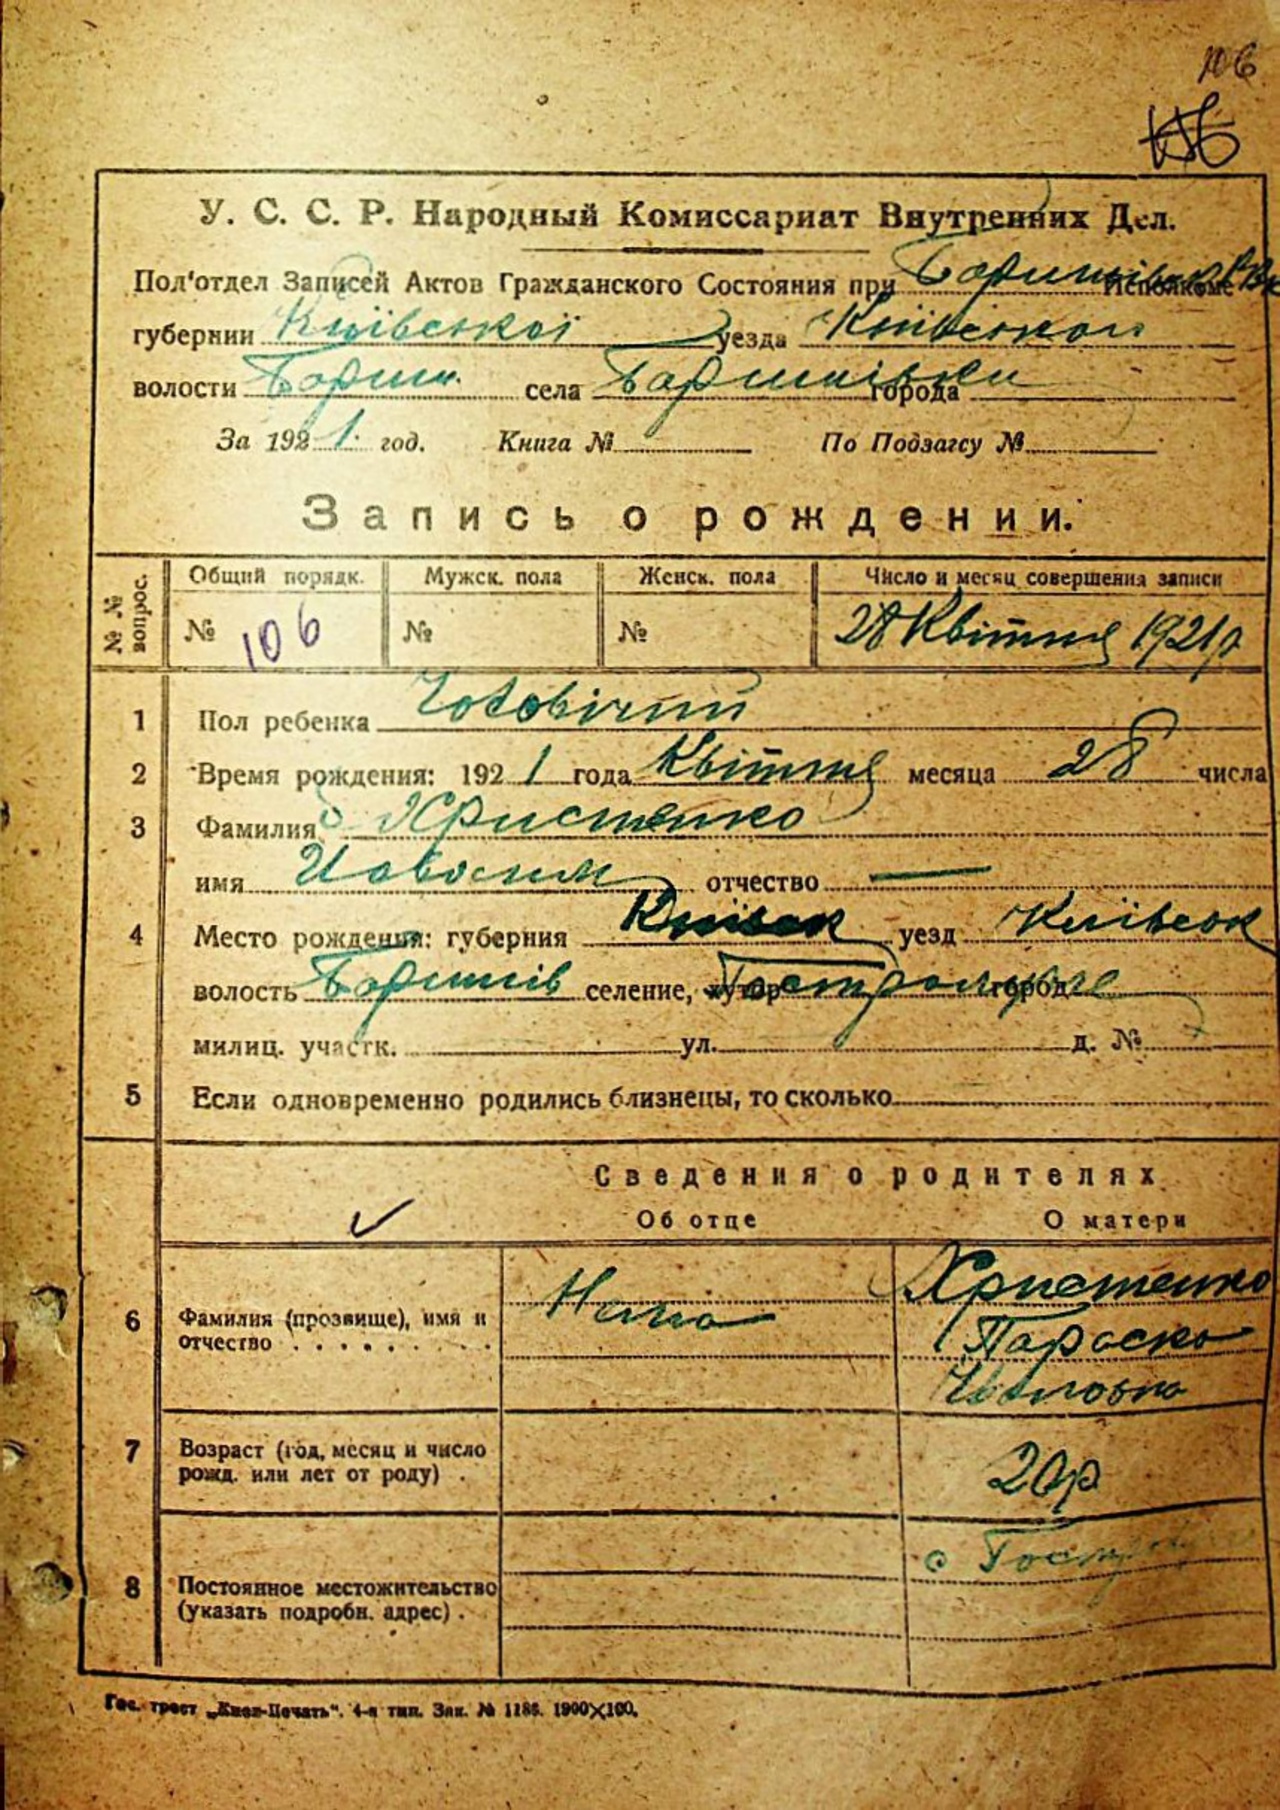 106
У. С. С. Р. Народный Комиссариат Внутренних Дел.
Под'отдел Записей Актов Гражданского Состояния при Исполкоме
губернии Київської уезда Київського
волости Бориш. села города
За 1921. год. Книга № По Подзагсу №
Запись о рождении.
№ № вопрос. Общий порядк. Мужск. пола Женск. пола Число и месяц совершения записи
№ 106 № № 28 Квітня 1921р
1 Пол ребенка Чоловічий
2 Время рождения: 1921 года Квітня месяца 28 числа
3 Фамилия Христенко
имя отчество —
4 Место рождения: губерния Київськ уезд Київськ
волость селение, хутор город
милиц. участк. ул. д. №
5 Если одновременно родились близнецы, то сколько
Сведения о родителях
Об отце О матери
6 Фамилия (прозвище), имя и отчество . . . . . . . . . . Нема Христенко
Параска
7 Возраст (год, месяц и число рожд. или лет от роду) . 20р
8 Постоянное местожительство (указать подробн. адрес) . с
Гос. трест „Киев-Печать“. 4-я тип. Зак. № 1186. 1900×100.